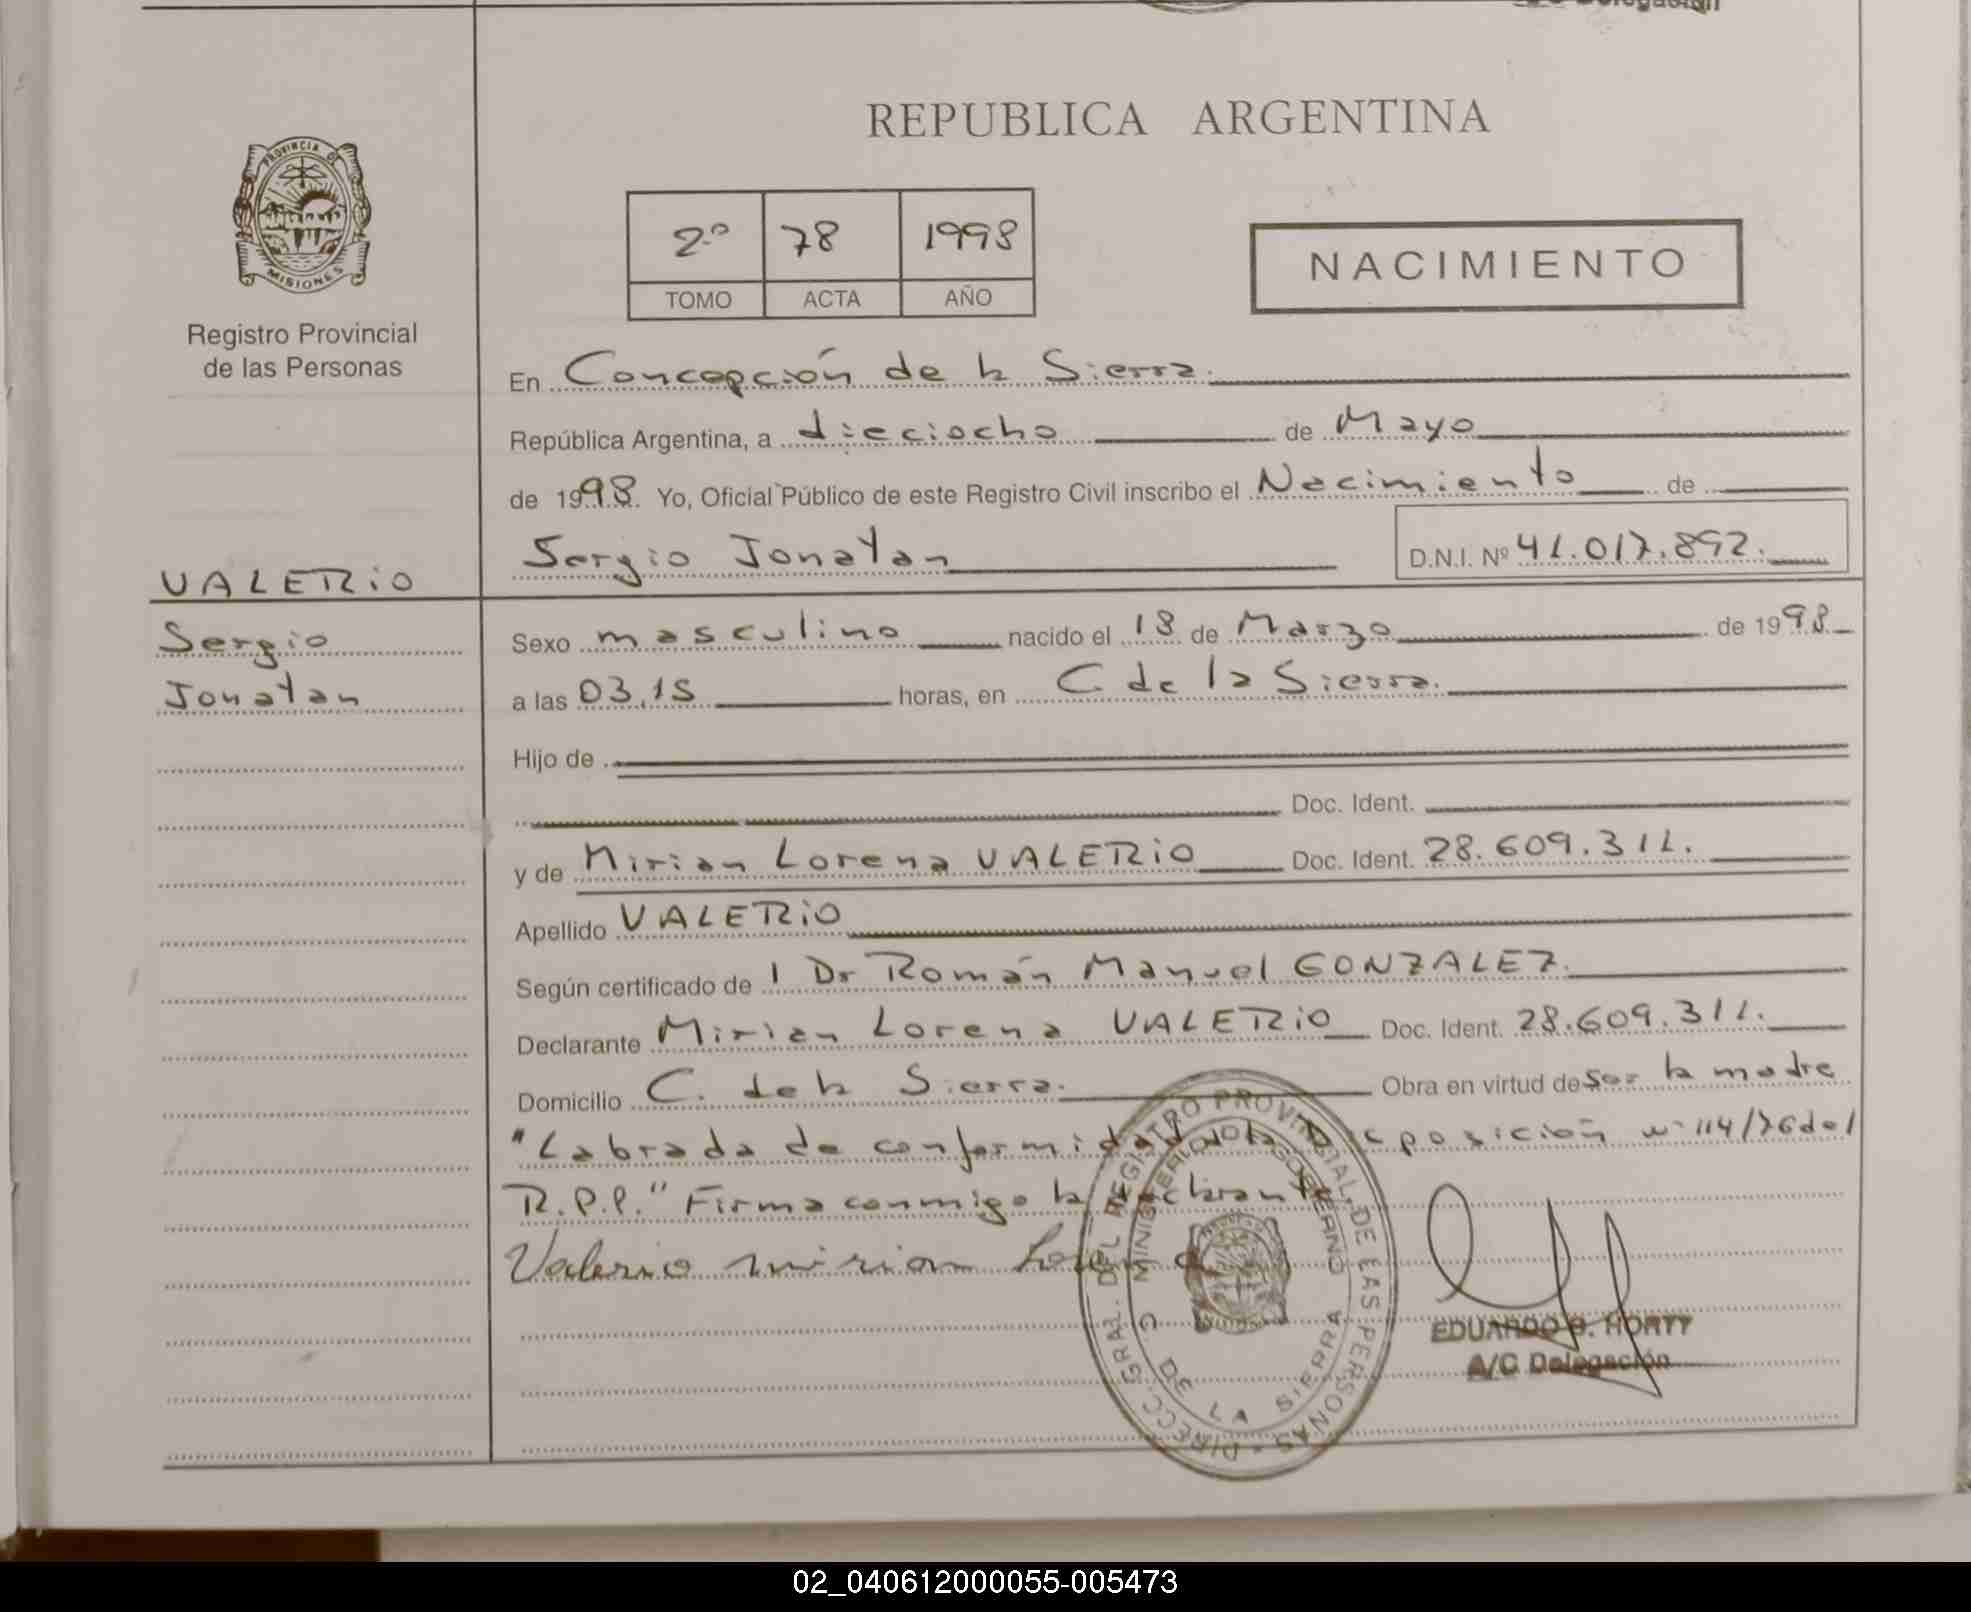 Delegación
PROVINCIA DE
MISIONES
Registro Provincial
de las Personas
REPUBLICA ARGENTINA
2º 78 1998
TOMO ACTA AÑO
NACIMIENTO
En Concepción de la Sierra.
República Argentina, a dieciocho de Mayo
de 1998. Yo, Oficial Público de este Registro Civil inscribo el Nacimiento de
Sergio Jonatan D.N.I. Nº 41.017.892.
VALERIO
Sergio
Jonatan
Sexo masculino nacido el 18 de Marzo de 1998
a las 03,15 horas, en C. de la Sierra.
Hijo de
Doc. Ident.
y de Mirian Lorena VALERIO Doc. Ident. 28.609.311.
Apellido VALERIO
Según certificado de l Dr Román Manuel GONZALEZ.
Declarante Mirian Lorena VALERIO Doc. Ident. 28.609.311.
Domicilio C. de la Sierra. Obra en virtud de ser la madre
"Labrada de conformidad a la Disposición nº 114/76 del
R.P.P." Firma conmigo la declarante
Valerio mirian Lorena
EDUARDO HORTT
A/C Delegación
DIRECC. GRAL. DEL REGISTRO PROVINCIAL DE LAS PERSONAS
MINISTERIO DE GOBIERNO
C DE LA SIERRA
02_040612000055-005473